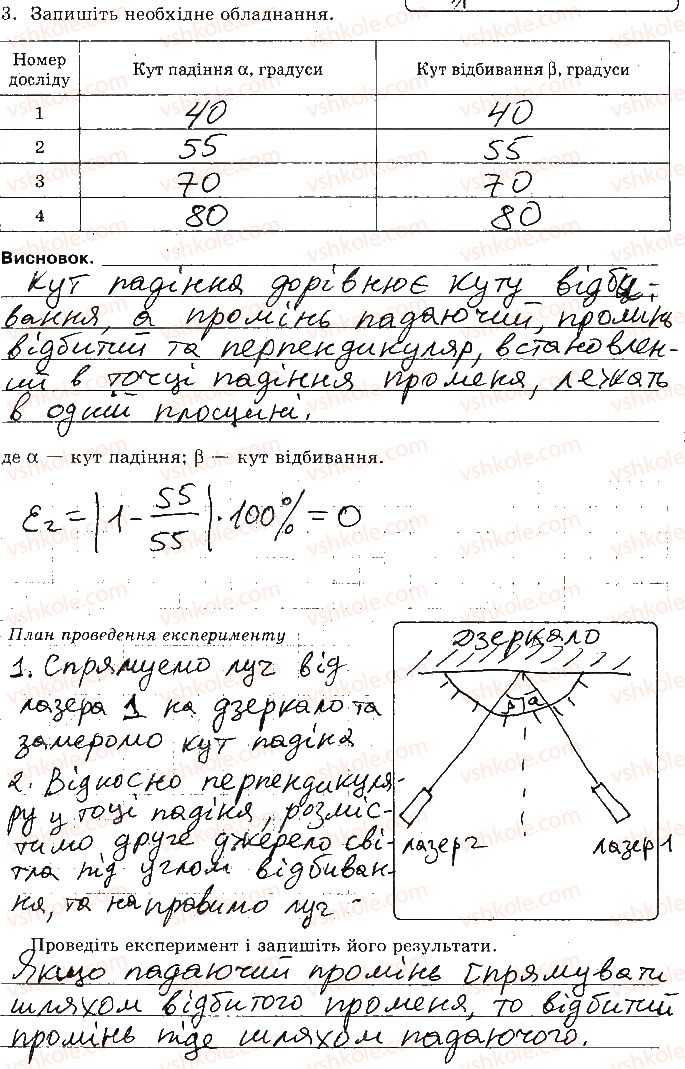 3. Запишіть необхідне обладнання.
Номер досліду | Кут падіння α, градуси | Кут відбивання β, градуси
1 | 40 | 40
2 | 55 | 55
3 | 70 | 70
4 | 80 | 80
Висновок.
Кут падіння дорівнює куту відби-
вання, а промінь падаючий, промінь
відбитий та перпендикуляр, встановлен-
ий в точці падіння променя, лежать
в одній площині.
де α — кут падіння; β — кут відбивання.
ε₂ = |1 - 55/55| · 100% = 0
План проведення експерименту
1. Спрямуемо луч від
лазера 1 на дзеркало та
замеромо кут падіна
2. Відносно перпендикуля-
ру у тоці падіня, розміс-
тимо друге джерело сві-
тла під углом відбиван-
ня, та направимо луч
дзеркало
β α
лазер 2
лазер 1
Проведіть експеримент і запишіть його результати.
Якщо падаючий промінь спрямувати
шляхом відбитого променя, то відбитий
промінь піде шляхом падаючого.
vshkole.com